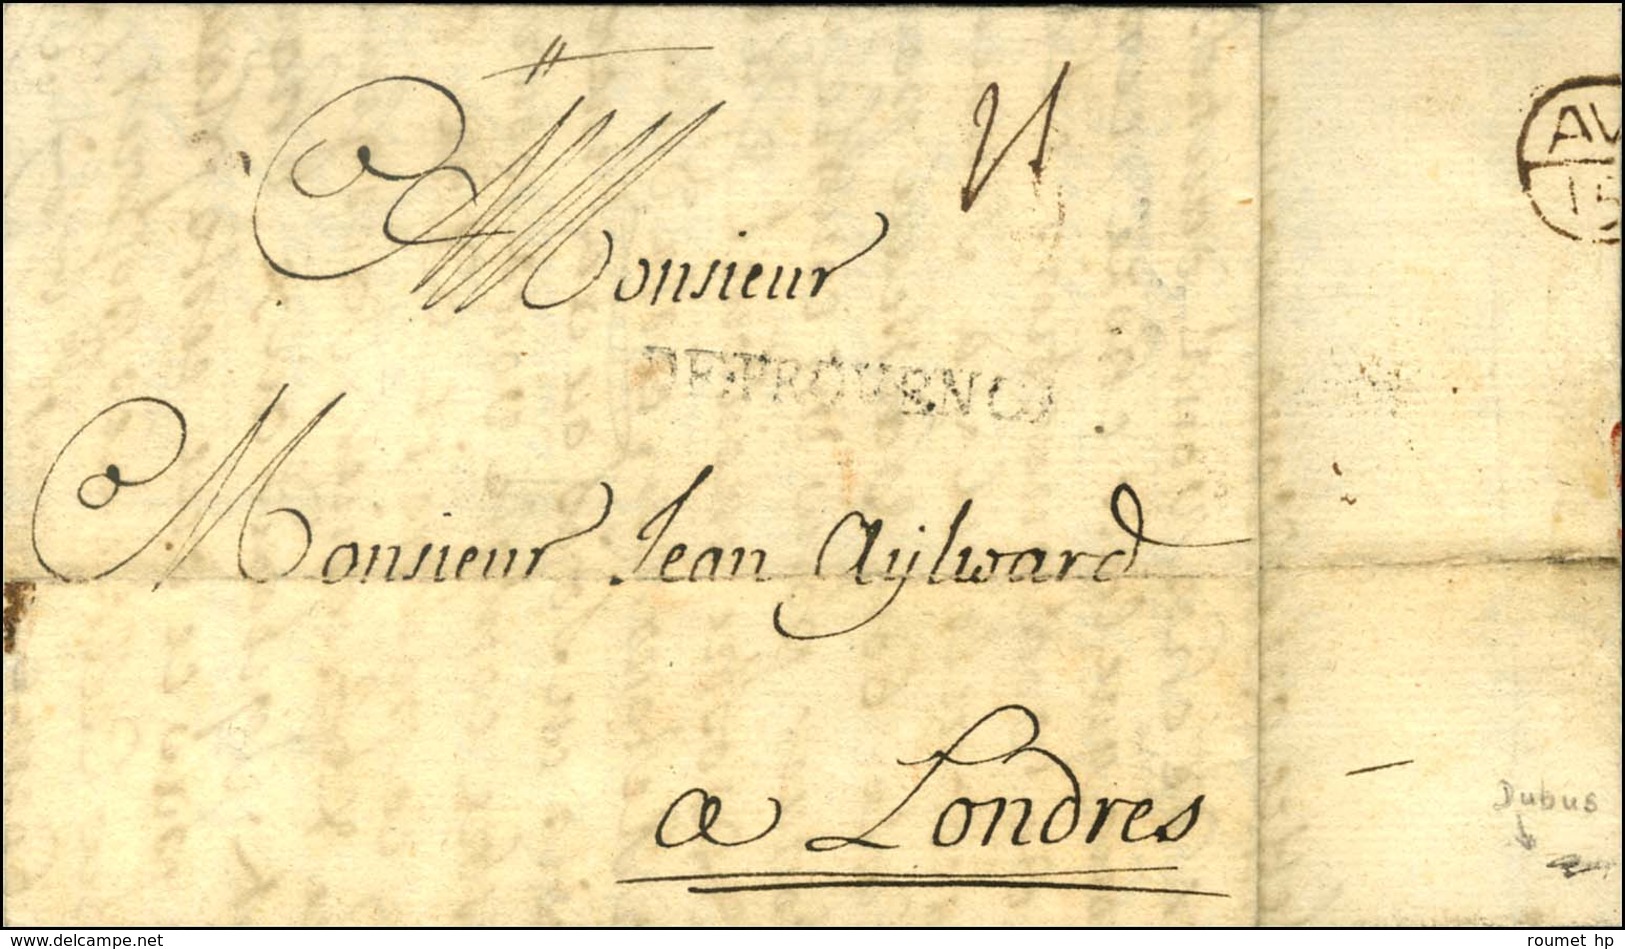 Monsieur
DE PROUENCE
Monsieur Jean Aylward
a Londres
AV
15
Dubus
delcampe.net
roumet hp